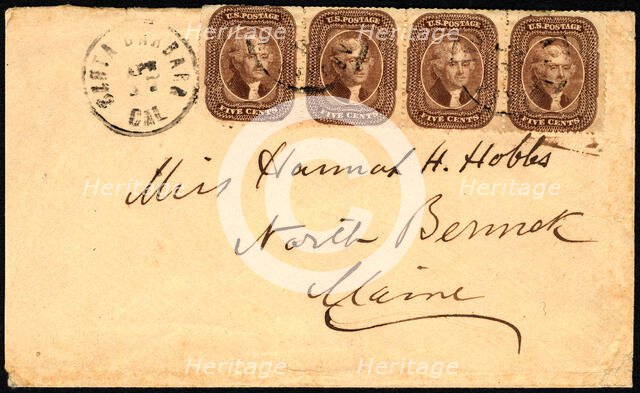 SANTA BARBARA
CAL
U.S. POSTAGE
FIVE CENTS
U.S. POSTAGE
FIVE CENTS
U.S. POSTAGE
FIVE CENTS
U.S. POSTAGE
FIVE CENTS
Miss Hannah H. Hobbs
North Berwick
Maine
Heritage Heritage Heritage
Heritage Heritage Heritage
Heritage Heritage Heritage